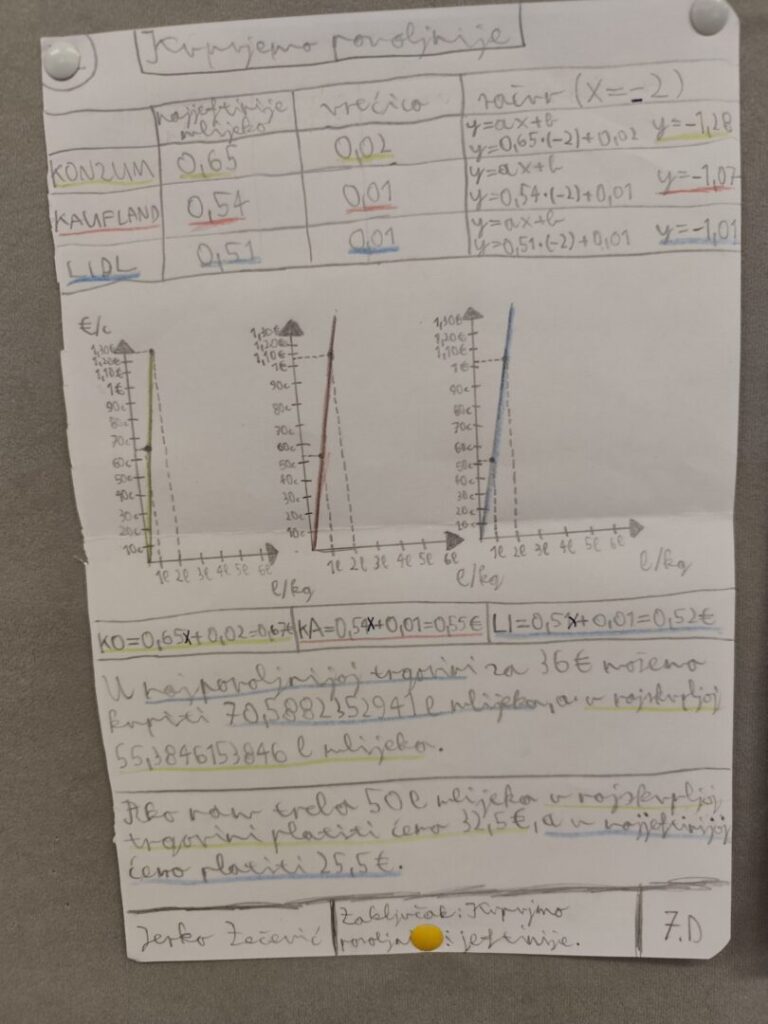 Kupujemo povoljnije
najjeftinije mlijeko vrećica račun (x=-2)
KONZUM 0,65 0,02 y=ax+b y=0,65·(-2)+0,02 y=-1,28
KAUFLAND 0,54 0,01 y=ax+b y=0,54·(-2)+0,01 y=-1,07
LIDL 0,51 0,01 y=ax+b y=0,51·(-2)+0,01 y=-1,01
€/c
1,30€
1,20€
1,10€
1€
90c
80c
70c
60c
50c
40c
30c
20c
10c
1l 2l 3l 4l 5l 6l
l/kg
1,30€
1,20€
1,10€
1€
90c
80c
70c
60c
50c
40c
30c
20c
10c
1l 2l 3l 4l 5l 6l
l/kg
1,30€
1,20€
1,10€
1€
90c
80c
70c
60c
50c
40c
30c
20c
10c
1l 2l 3l 4l 5l 6l
l/kg
KO=0,65x+0,02=0,67€ KA=0,54x+0,01=0,55€ LI=0,51x+0,01=0,52€
U najpovoljnijoj trgovini za 36€ možemo
kupiti 70,5882352941 l mlijeka, a u najskupljoj
55,3846153846 l mlijeka.
Ako nam treba 50l mlijeka u najskupljoj
trgovini platiti ćemo 32,5€, a u najjeftinijoj
ćemo platiti 25,5€.
Jerko Zečević
Zaključak: Kupujmo
i jeftinije.
7.D